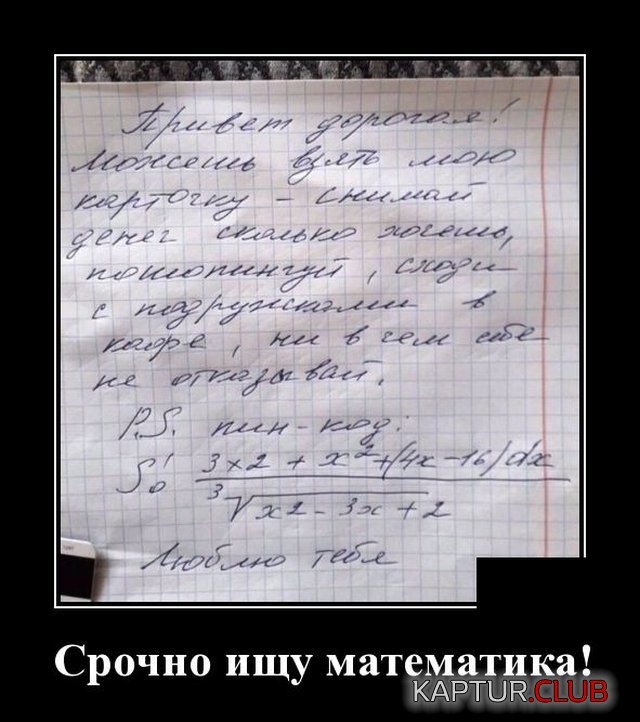 Привет дорогая!
Можешь взять мою
карточку – снимай
денег сколько хочешь,
пошопингуй, сходи
с подружками в
кафе, ни в чем себе
не отказывай.
P.S. пин-код:
3x2 + x²+(4x-16)dx
S¹₀
³√x2-3x+2
Люблю тебя
Срочно ищу математика!
KAPTUR.CLUB